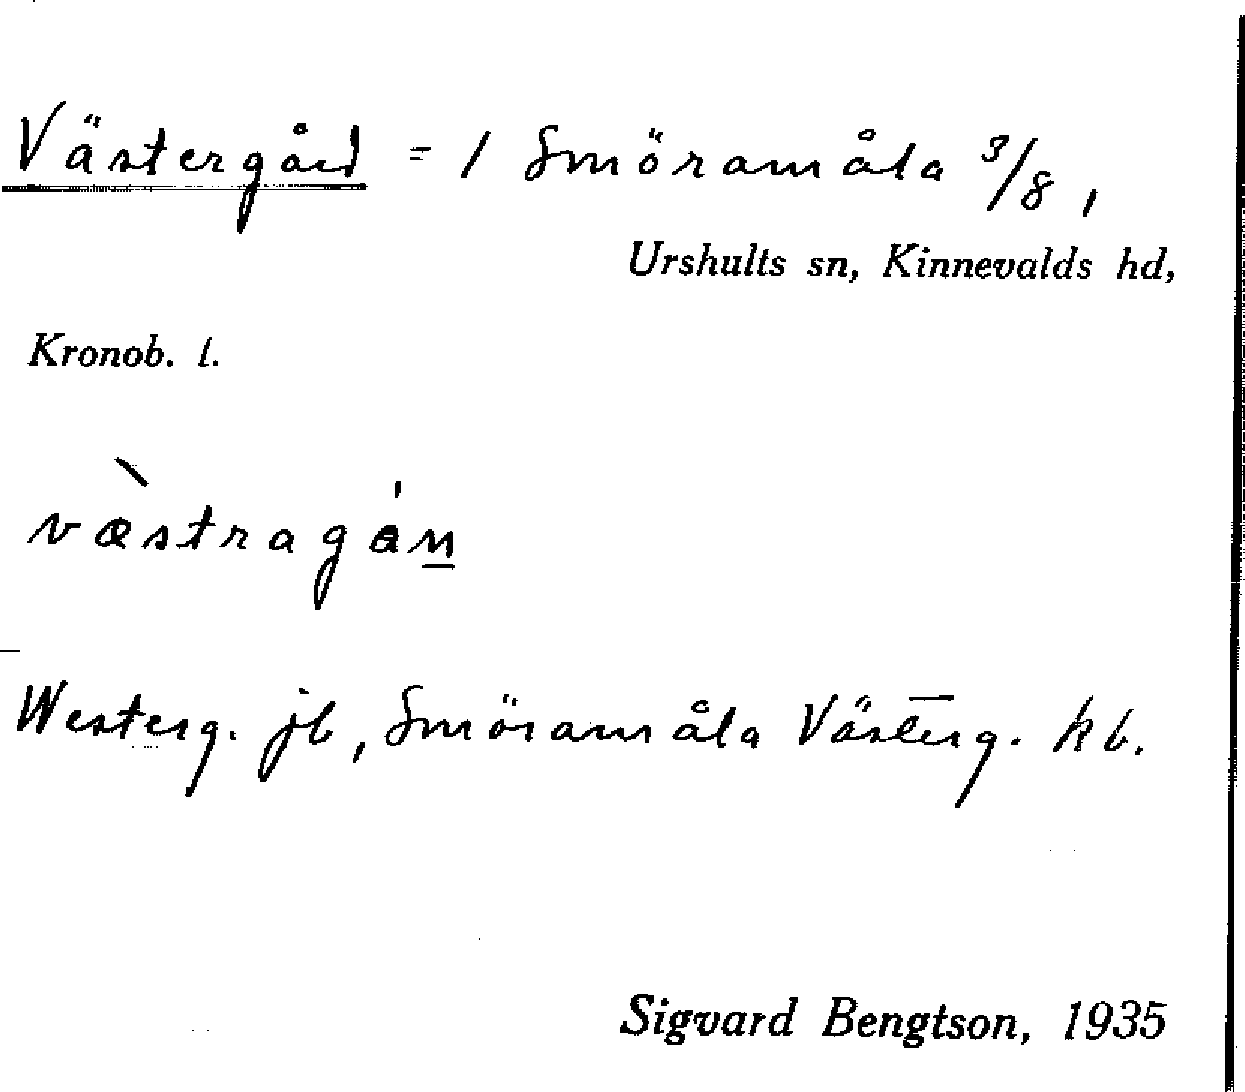 Västergård = 1 Smöramåla 3/8,
Urshults sn, Kinnevalds hd,
Kronob. l.
væ̀stragán̲
Westerg. jb, Smöramåla Västerg. kb.
Sigvard Bengtson, 1935